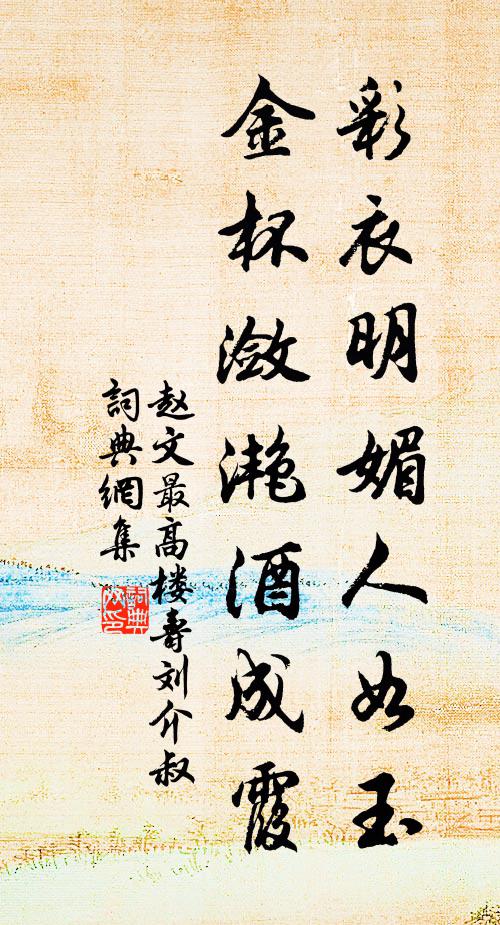 彩衣明媚人如玉
金杯潋滟酒成霞
赵文最高楼寿刘介叔
詞典網集